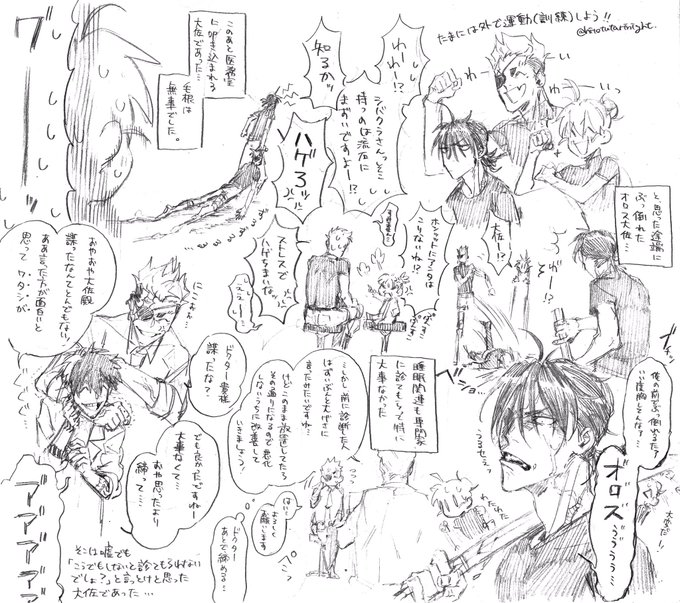 たまには外で運動(訓練)しよう!!
@hirotutarnight.
わーい
わーいっ
と思った途端に
ぶっ倒れた
オロス大佐…
大佐ー!?
えっ!?
わーわー!?
シバクラさんっそこ
持つのは流石に
まずいですよー!?
知るかッ
ハゲろッ
このあと医務室
に叩き込まれる
大佐であった…
毛根は
無事でした。
俺の前でぶっ倒れるたァ
いい度胸してんなァ…
オロス
うううう…
大佐ー!
うるせェっ
わたわた
ホントにアンタは
こりないね!?
すみません…
ストレスで
ハゲちまいなッ
えぇー…
睡眠関連も専門家
に診てもらって特に
大事なかった
…しかし前に診断した人
はずいぶんと大げさに
言ったみたいですね…
けどこのまま放置してたら
その通りになるので悪化
しないうちに改善して
いきましょう。
はい…
よろしく
お願いします
ぺこっ
ドクター
あとで締める…
ドクター貴様
謀ったな?
にこにこ
おやおや大佐殿
謀ったなんてとんでもない!
ああ言った方が面白いと
思って ワタシが、
でも良かったですねー
大事なくて…
おや思ったより
締って…
アアアアア
そこは嘘でも
「こうでもしないと診てもらわない
でしょ?」と言っとけと思った
大佐であった…